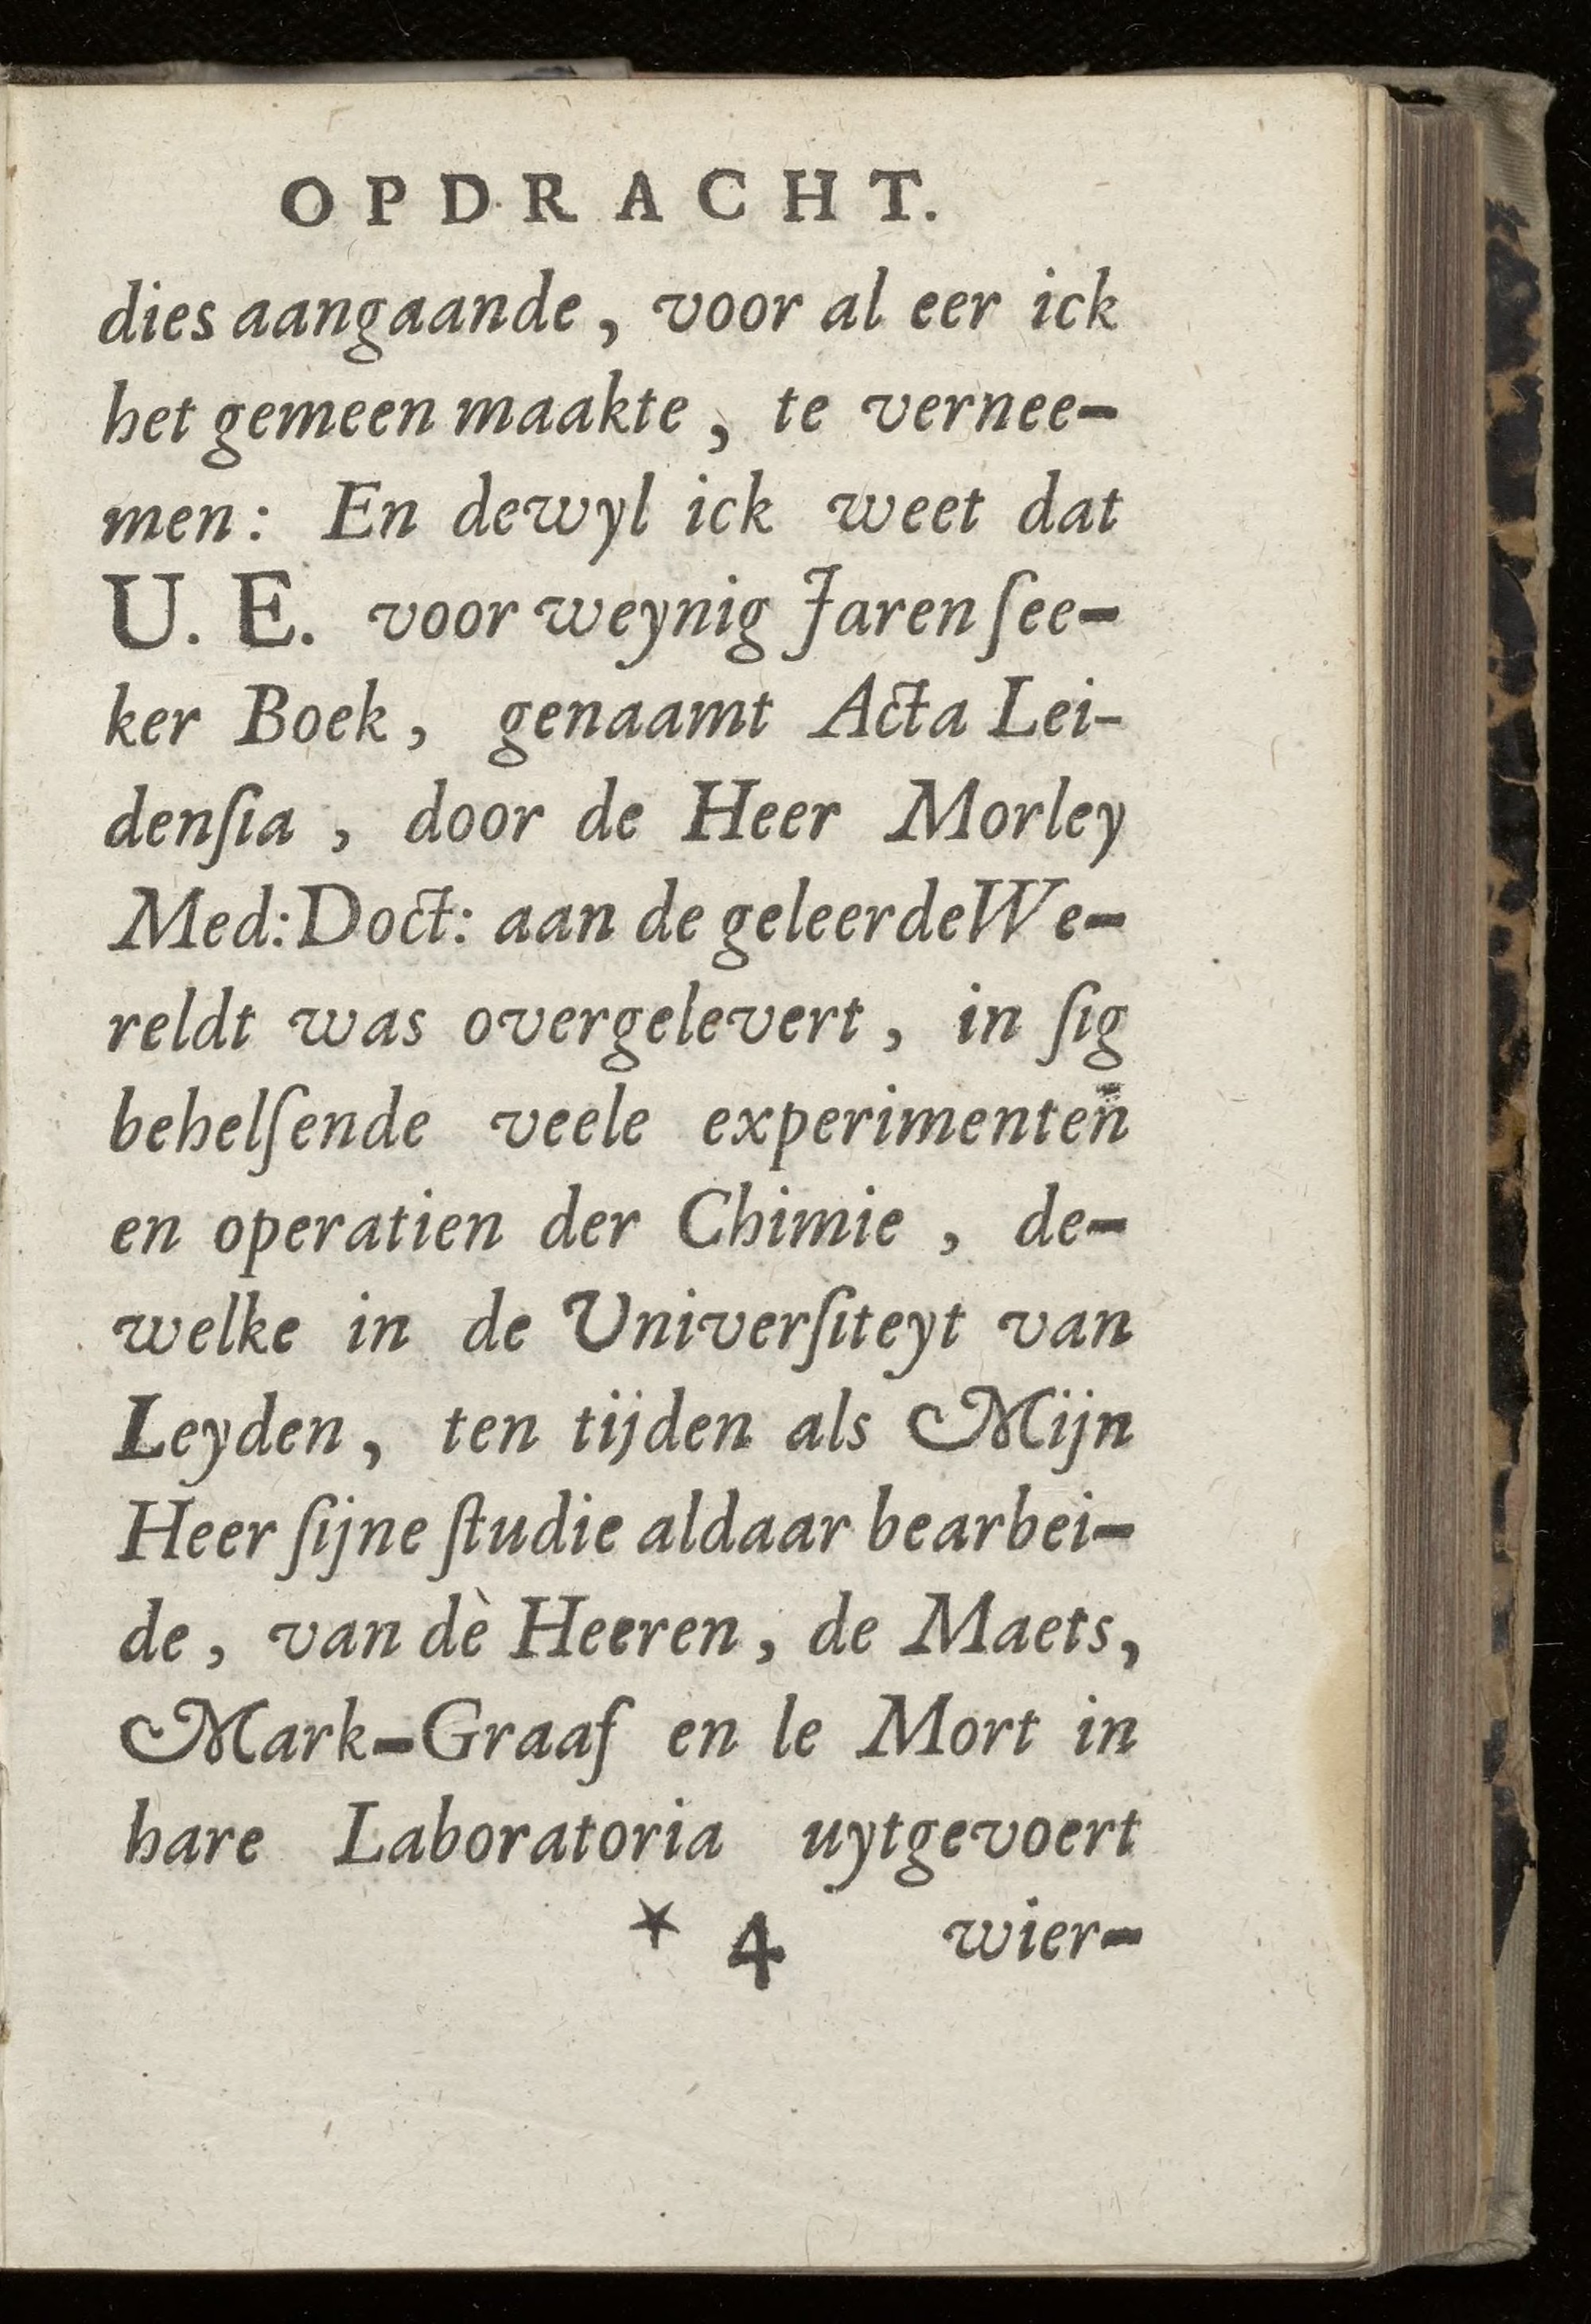 OPDRACHT.
dies aangaande, voor al eer ick
het gemeen maakte, te vernee-
men: En dewyl ick weet dat
U. E. voor weynig Jaren ſee-
ker Boek, genaamt Acta Lei-
denſia, door de Heer Morley
Med: Doct: aan de geleerde We-
reldt was overgelevert, in ſig
behelſende veele experimenten
en operatien der Chimie, de-
welke in de Univerſiteyt van
Leyden, ten tijden als Mijn
Heer ſijne ſtudie aldaar bearbei-
de, van dè Heeren, de Maets,
Mark-Graaf en le Mort in
hare Laboratoria uytgevoert
* 4 wier-